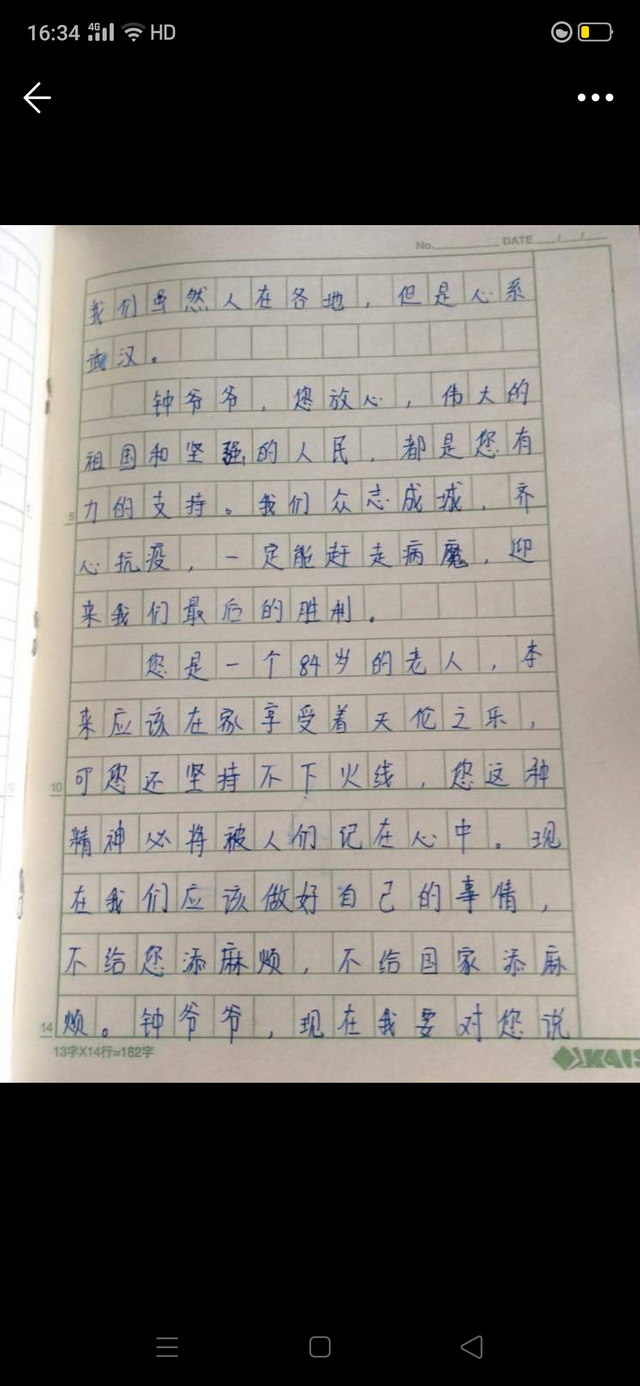 16:34 4G HD
No. DATE / /
我们虽然人在各地，但是心系
武汉。
钟爷爷，您放心，伟大的
祖国和坚强的人民，都是您有
5 力的支持。我们众志成城，齐
心抗疫，一定能赶走病魔，迎
来我们最后的胜利。
您是一个84岁的老人，本
来应该在家享受着天伦之乐，
10 可您还坚持不下火线，您这种
精神必将被人们记在心中。现
在我们应该做好自己的事情，
不给您添麻烦，不给国家添麻
14 烦。钟爷爷，现在我要对您说
13字X14行=182字